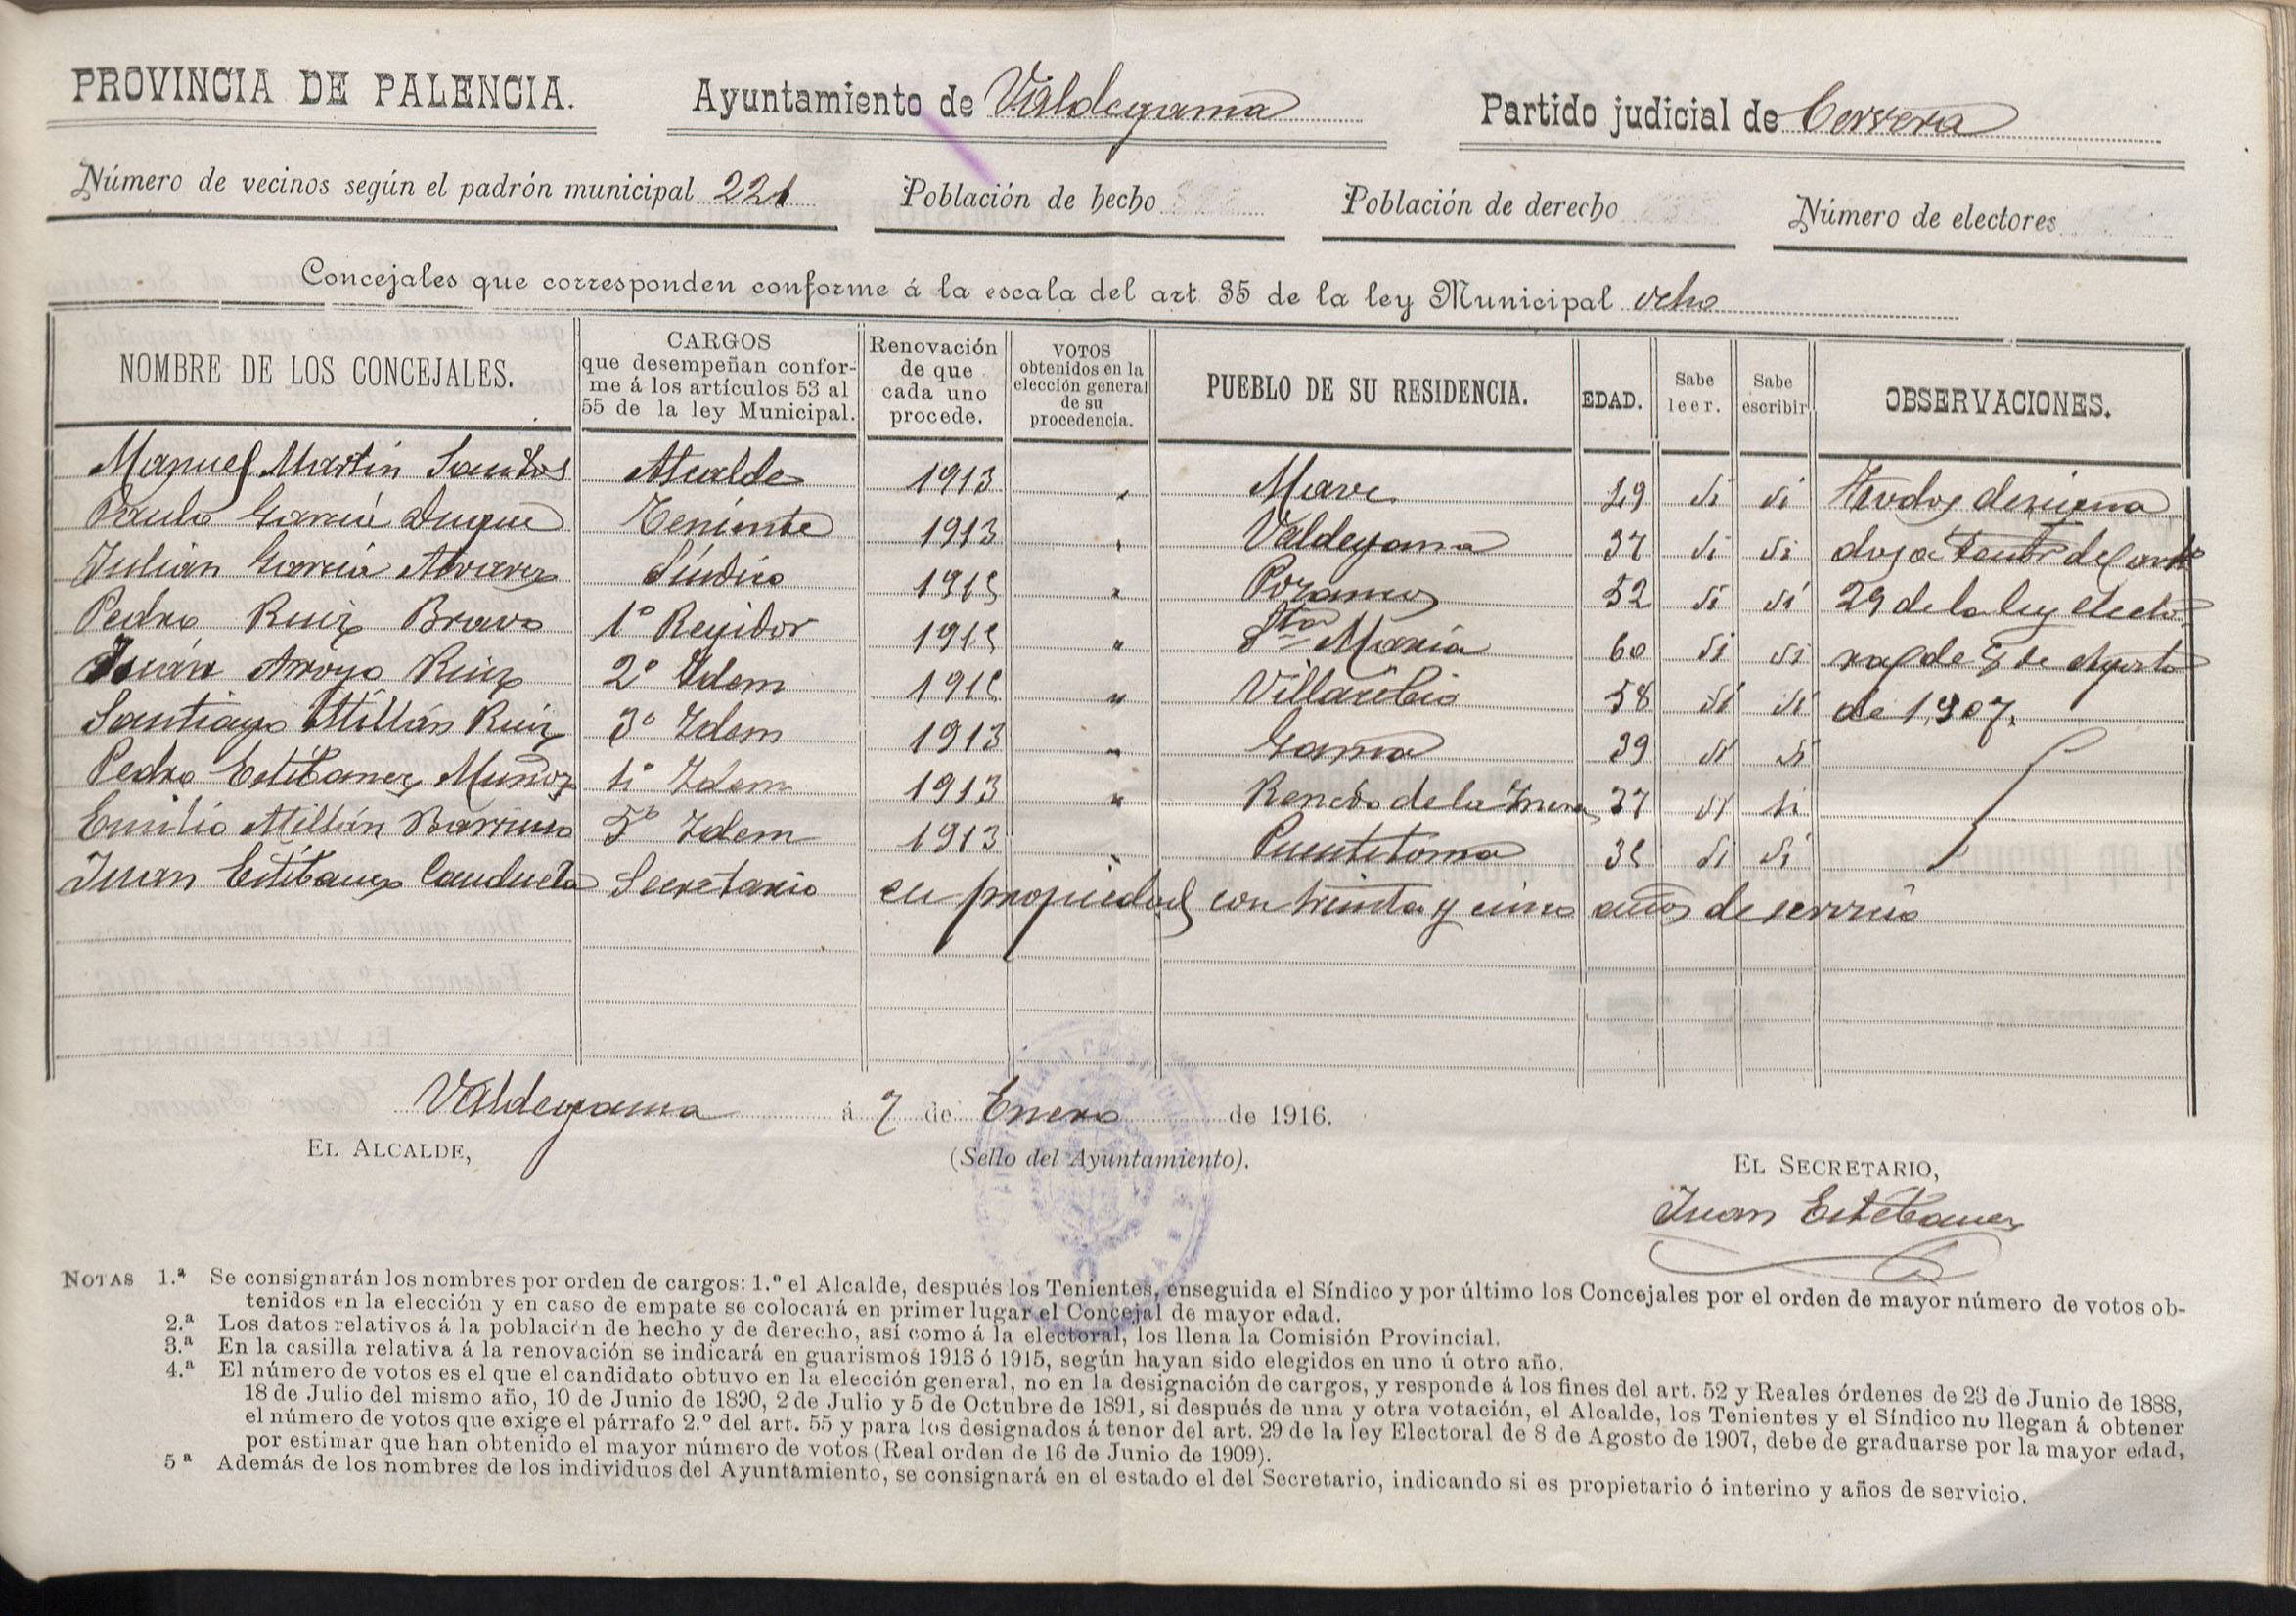 PROVINCIA DE PALENCIA. Ayuntamiento de Valdegama Partido judicial de Cervera
Número de vecinos según el padrón municipal 221 Población de hecho Población de derecho Número de electores
Concejales que corresponden conforme á la escala del art 35 de la ley Municipal ocho
NOMBRE DE LOS CONCEJALES. CARGOS que desempeñan conforme á los artículos 53 al 55 de la ley Municipal. Renovación de que cada uno procede. VOTOS obtenidos en la elección general de su procedencia. PUEBLO DE SU RESIDENCIA. EDAD. Sabe leer. Sabe escribir OBSERVACIONES.
Manuel Martín Santos Alcalde 1913 " Mave 29 si si Todos designa
Paulo García Duque Teniente 1913 " Valdegama 37 si si dos a tenor del artº
Julián García Alvarez Síndico 1915 " Pozancos 52 si si 29 de la ley electo
Pedro Ruiz Bravo 1º Regidor 1915 " Sta María 60 si si ral de 8 de Agosto
Juán Arroyo Ruiz 2º Idem 1915 " Villaribio 58 si si de 1,907.
Santiago Millán Ruiz 3º Idem 1913 " Gama 39 si si
Pedro Estébanez Muñoz 4º Idem 1913 " Renedo de la Inera 37 si si
Emilio Millán Barriuso 5º Idem 1913 " Puentetoma 35 si si
Juan Estébanez Secretario en propiedad con treinta y cinco años de servicio
Valdegama á 7 de Enero de 1916.
EL ALCALDE, (Sello del Ayuntamiento). EL SECRETARIO,
Juan Estébanez
NOTAS 1.ª Se consignarán los nombres por orden de cargos: 1.º el Alcalde, después los Tenientes, enseguida el Síndico y por último los Concejales por el orden de mayor número de votos ob-
tenidos en la elección y en caso de empate se colocará en primer lugar el Concejal de mayor edad.
2.ª Los datos relativos á la población de hecho y de derecho, así como á la electoral, los llena la Comisión Provincial.
3.ª En la casilla relativa á la renovación se indicará en guarismos 1913 ó 1915, según hayan sido elegidos en uno ú otro año.
4.ª El número de votos es el que el candidato obtuvo en la elección general, no en la designación de cargos, y responde á los fines del art. 52 y Reales órdenes de 23 de Junio de 1888,
18 de Julio del mismo año, 10 de Junio de 1890, 2 de Julio y 5 de Octubre de 1891, si después de una y otra votación, el Alcalde, los Tenientes y el Síndico no llegan á obtener
el número de votos que exige el párrafo 2.º del art. 55 y para los designados á tenor del art. 29 de la ley Electoral de 8 de Agosto de 1907, debe de graduarse por la mayor edad,
por estimar que han obtenido el mayor número de votos (Real orden de 16 de Junio de 1909).
5ª Además de los nombres de los individuos del Ayuntamiento, se consignará en el estado el del Secretario, indicando si es propietario ó interino y años de servicio.